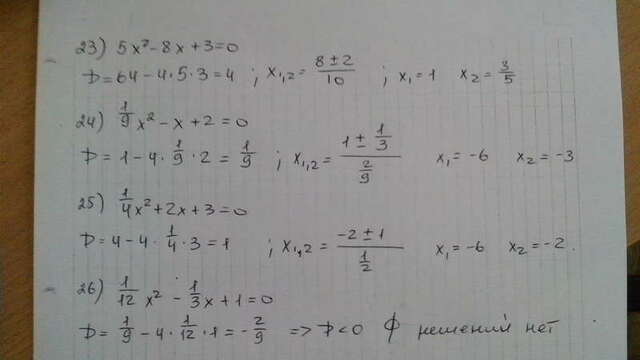 23) 5x²-8x+3=0
D=64-4·5·3=4 ; x₁,₂= (8±2)/10 ; x₁=1 x₂=3/5
24) 1/9 x²-x+2=0
D=1-4·1/9·2=1/9 ; x₁,₂= (1±1/3)/(2/9) x₁=-6 x₂=-3
25) 1/4 x²+2x+3=0
D=4-4·1/4·3=1 ; x₁,₂= (-2±1)/(1/2) x₁=-6 x₂=-2.
26) 1/12 x²-1/3 x+1=0
D=1/9-4·1/12·1=-2/9 => D<0 ϕ решений нет